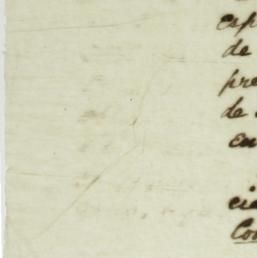 esp
de
pre
de
en
cia
Con